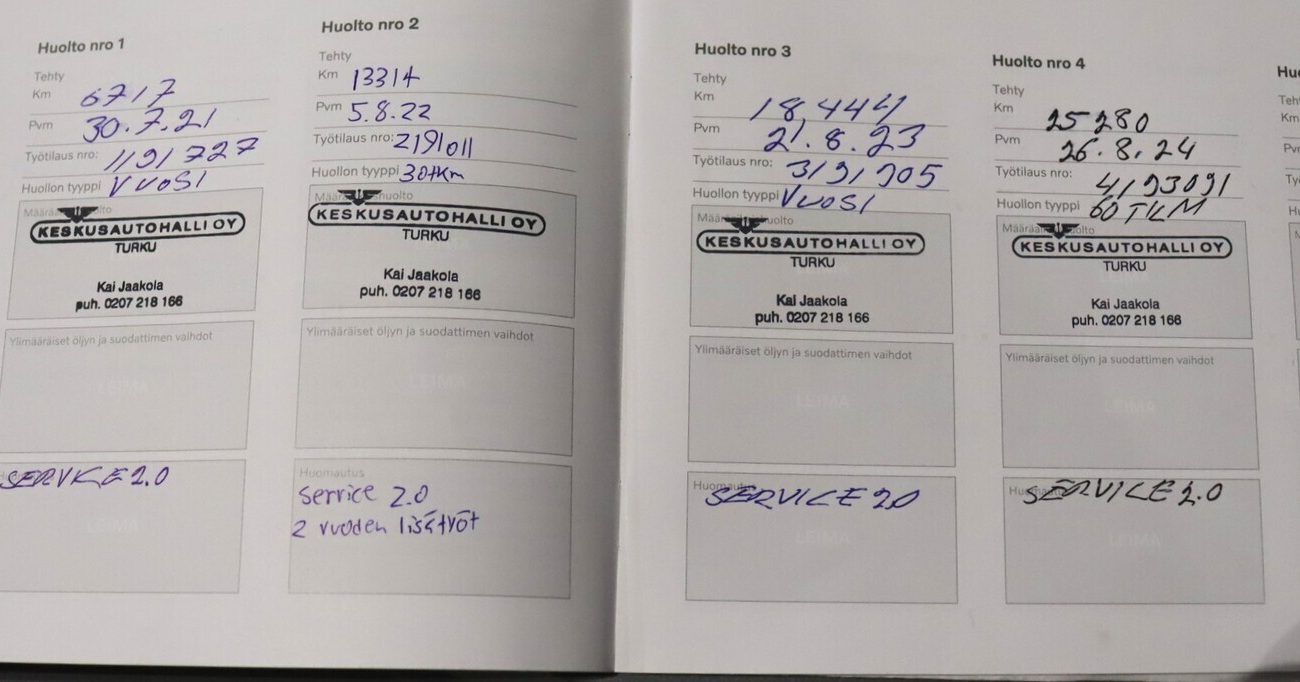 Huolto nro 1
Tehty
Km 6717
Pvm 30.7.21
Työtilaus nro: 1191727
Huollon tyyppi VUOSI
KESKUSAUTOHALLI OY
TURKU
Kai Jaakola
puh. 0207 218 166
Ylimääräiset öljyn ja suodattimen vaihdot
LEIMA
SERVICE 2.0
LEIMA
Huolto nro 2
Tehty
Km 13314
Pvm 5.8.22
Työtilaus nro: 2191011
Huollon tyyppi 30tkm
KESKUSAUTOHALLI OY
TURKU
Kai Jaakola
puh. 0207 218 166
Ylimääräiset öljyn ja suodattimen vaihdot
LEIMA
Huomautus
Service 2.0
2 vuoden lisätyöt
Huolto nro 3
Tehty
Km 18,444
Pvm 21.8.23
Työtilaus nro: 3191905
Huollon tyyppi VUOSI
KESKUSAUTOHALLI OY
TURKU
Kai Jaakola
puh. 0207 218 166
Ylimääräiset öljyn ja suodattimen vaihdot
LEIMA
Huomautus
SERVICE 2.0
LEIMA
Huolto nro 4
Tehty
Km 25280
Pvm 26.8.24
Työtilaus nro: 4193091
Huollon tyyppi 60 TKM
KESKUSAUTOHALLI OY
TURKU
Kai Jaakola
puh. 0207 218 166
Ylimääräiset öljyn ja suodattimen vaihdot
LEIMA
SERVICE 2.0
LEIMA